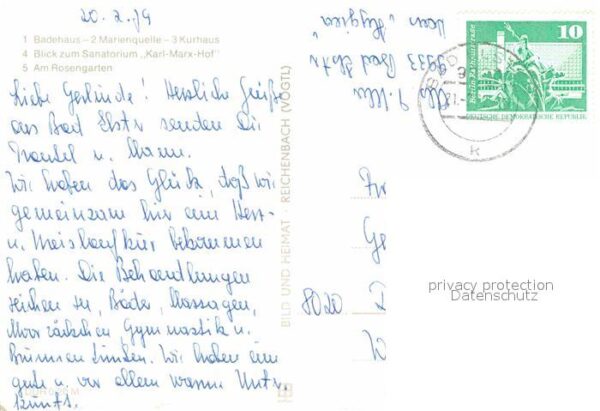 20. 2. 79
1 Badehaus – 2 Marienquelle – 3 Kurhaus
4 Blick zum Sanatorium „Karl-Marx-Hof"
5 Am Rosengarten
Liebe Gerlinde! Herzliche Grüße
aus Bad Elster senden Dir
Traudel u. Mann.
Wir haben das Glück, daß wir
gemeinsam hier eine Herz-
u. Kreislaufkur bekommen
haben. Die Behandlungen
reichen von Bäder, Massagen,
Moorpäckchen, Gymnastik u.
Brunnen trinken. Wir haben eine
gute u. vor allem warme Unter-
kunft.
BILD UND HEIMAT · REICHENBACH (VOGTL)
"Hygiea"
9933 Bad Elster
10
Berlin, Rathausstraße
DEUTSCHE DEMOKRATISCHE REPUBLIK
BAD
21.
k
Fr
Ge
8020 D
W
privacy protection
Datenschutz